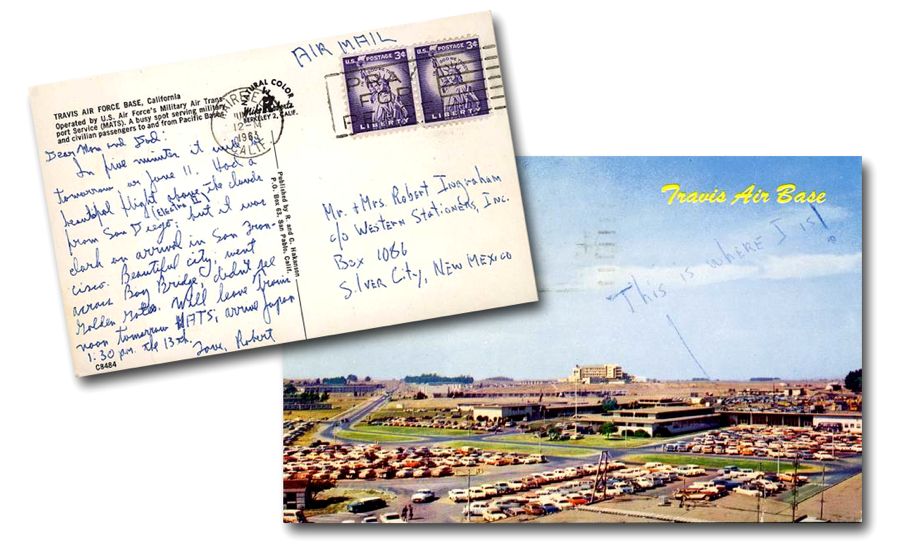 AIR MAIL
U.S. POSTAGE 3¢
LIBERTY
U.S. POSTAGE 3¢
LIBERTY
NATURAL COLOR
BERKELEY 2, CALIF.
12-M
CALIF.
TRAVIS AIR FORCE BASE, California
Operated by U.S. Air Force's Military Air Trans-
port Service (MATS). A busy spot serving military
and civilian passengers to and from Pacific Bases.
Dear Mom and Dad:
In five minutes it will be
tomorrow or June 11. Had a
beautiful flight above the clouds
from San Diego, but it was
dark on arrival in San Fran-
cisco. Beautiful city; went
across Bay Bridge, didn't see
Golden Gate. Will leave Travis
noon tomorrow MATS, arrive Japan
1:30 pm. the 13th.
Love, Robert
C8484
Published by R. and C. Hakanson
P.O. Box 63, San Pablo, Calif.
Mr. + Mrs. Robert Ingraham
c/o Western Stationers, Inc.
Box 1066
Silver City, New Mexico
Travis Air Base
This is where I is!